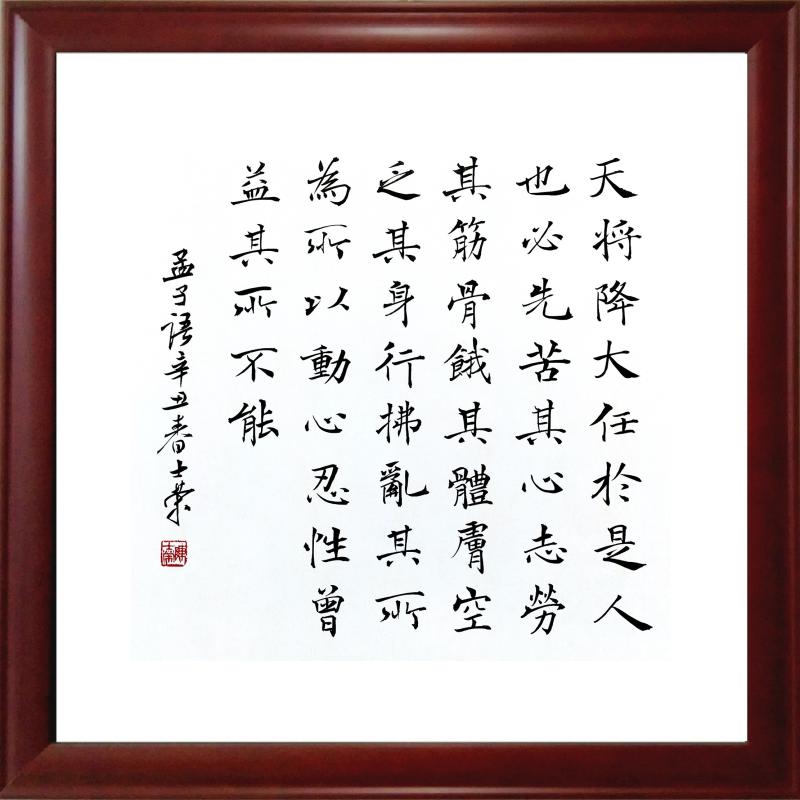 天將降大任於是人
也必先苦其心志勞
其筋骨餓其體膚空
乏其身行拂亂其所
為所以動心忍性曾
益其所不能
孟子語辛丑春士榮